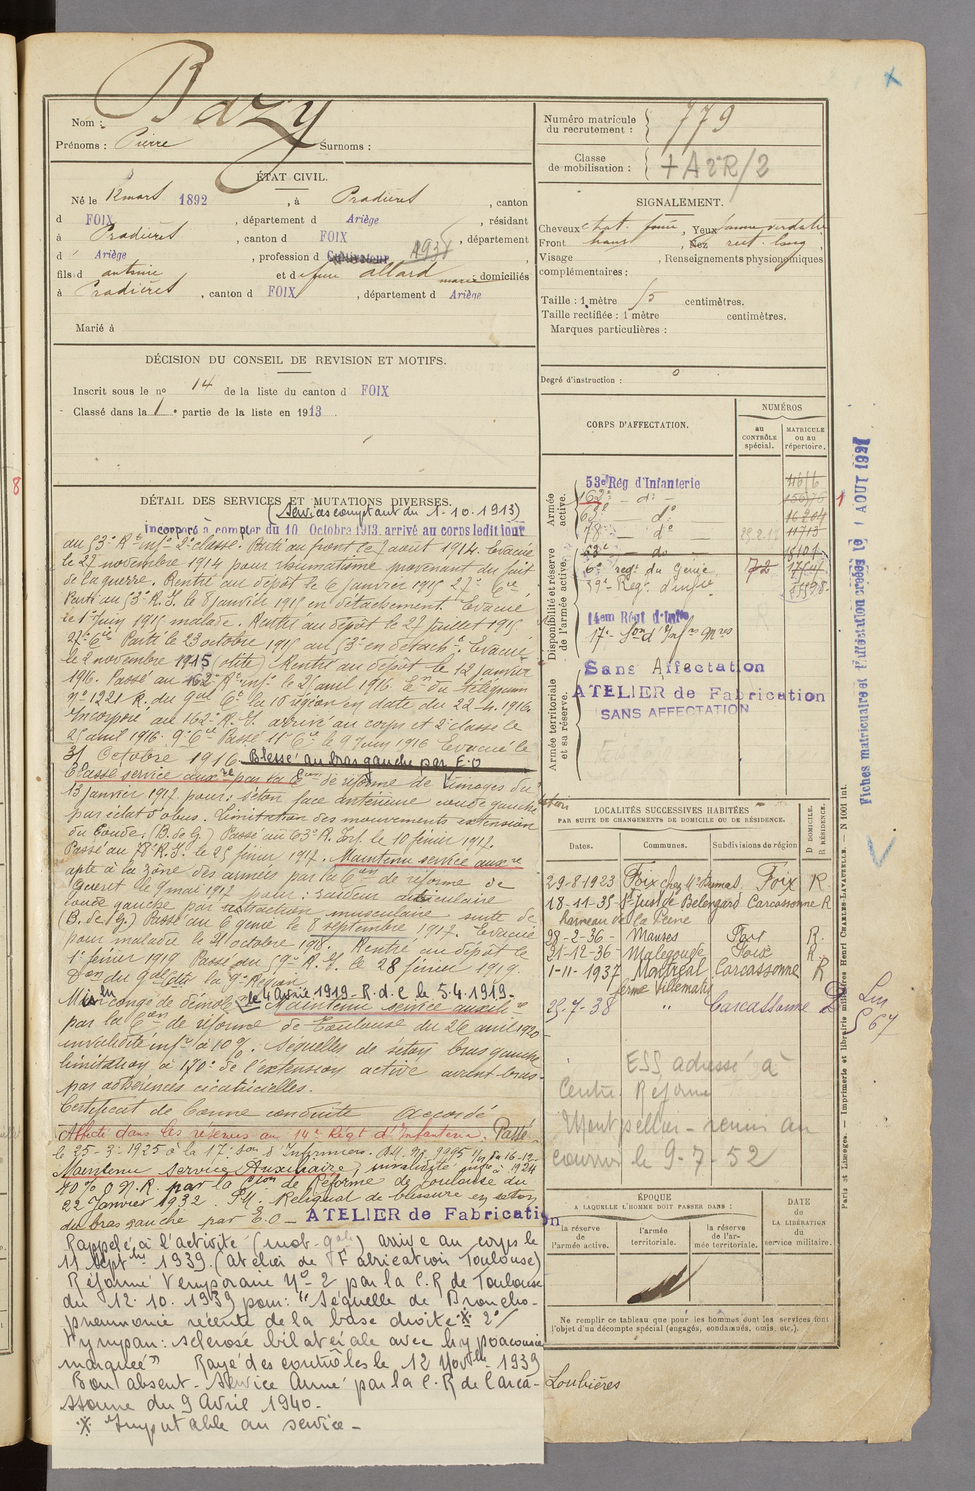 Nom : Bazy
Prénoms : Pierre Surnoms :
ÉTAT CIVIL.
Né le 12 mars 1892, à Pradières, canton
d FOIX, département d Ariège, résidant
à Pradières, canton d FOIX, département
d Ariège, profession d Cultivateur
fils d antoine et de feue allard marie domiciliés
à Pradières, canton d FOIX, département d Ariège
Marié à
DÉCISION DU CONSEIL DE REVISION ET MOTIFS.
Inscrit sous le no 14 de la liste du canton d FOIX
Classé dans la 1e partie de la liste en 1913
DÉTAIL DES SERVICES ET MUTATIONS DIVERSES.
(Services comptant du 1.10.1913)
Incorporé à compter du 10 Octobre 1913. arrivé au corps ledit jour
au 53e Rt infie 2e classe. Parti au front le 7 aout 1914. Evacué
le 27 novembre 1914 pour rhumatisme provenant du fait
de la guerre. Rentré au dépôt le 6 janvier 1915 27e Cie
Parti au 53e R.I. le 8 janvier 1915 en détachement. Evacué
le 1er juin 1915 malade. Rentré au dépôt le 27 juillet 1915
27e Cie Parti le 23 octobre 1915 au 53e en détacht. Evacué
le 2 novembre 1915 (otite) Rentré au dépôt le 12 janvier
1916. Passé au 162e Rt infie le 25 avril 1916. En du télégramme
no 1221 R. du Gal Ct la 10 région en date du 22-4-1916
Incorporé au 162e R.I. arrivé au corps et 2e classe le
25 avril 1916. 9e Cie Passé 11e Cie le 9 juin 1916 Evacué le
31 Octobre 1916. Blessé au bras gauche par E.O
Classé service auxre par la Con de réforme de Limoges du
13 janvier 1917 pour: séton face antérieure coude gauche
par éclat d'obus. Limitation des mouvements extension
du coude. (B. de G.) Passé au 63e R. Inf. le 10 février 1917.
Passé au 78e R.I. le 25 février 1917. Maintenu service auxre
apte à la zône des armées par la Con de réforme de
Guéret le 9 mai 1917 pour: raideur articulaire
coude gauche par rétraction musculaire suite de
(B. de G.) Passé au 6 génie le 8 septembre 1917. Evacué
pour maladie le 21 octobre 1918. Rentré au dépôt le
1er février 1919 Passé au 59e R.I. le 28 février 1919.
Don du Gal Ct la 9e Région
Mis en congé de démob. le 4 Avril 1919 - R.d.C le 5.4.1919 -
Maintenu service auxre
par la Con de réforme de Toulouse du 26 avril 1920
invalidité infre à 10%. Séquelles de séton bras gauche
limitation à 170° de l'extension active avant-bras
par adhérences cicatricielles.
Certificat de bonne conduite accordé
Affecté dans les réserves au 14e Régt d'Infanterie. Passé
le 25-3-1925 à la 17e Son d'Infirmiers.
Maintenu Service Auxiliaire, invalidité infre à
10% O N.R par la Con de Réforme de Toulouse du
22 Janvier 1932. P.M. Reliquat de blessure en seton
du bras gauche par E.O - ATELIER de Fabrication
Rappelé à l'activité (mob. gale) arrivé au corps le
11 Septbre 1939. (Atelier de Fabrication Toulouse)
Réformé Temporaire No 2 par la C.R de Toulouse
du 12.10.1939 pour: "Séquelle de Broncho-
pneumonie récente de la base droite ※ 2°/
Tympan: sclérose bilatérale avec hypoacousie
marquée" Rayé des contrôles le 12 Novbre 1939
Bon absent. Service Armé par la C.R de Carca-
ssonne du 9 Avril 1940 -
※ Imputable au service -
Numéro matricule du recrutement : 779
Classe de mobilisation : + A2R/2
SIGNALEMENT.
Cheveux chat. foncé, Yeux jaune verdatre
Front haut, Nez rect. long,
Visage , Renseignements physionomiques
complémentaires :
Taille : 1 mètre 75 centimètres.
Taille rectifiée : 1 mètre centimètres.
Marques particulières :
Degré d'instruction : 0
CORPS D'AFFECTATION.
NUMÉROS
au CONTRÔLE spécial.
MATRICULE ou au répertoire.
Armée active.
53e Rég d'Infanterie
162e - do -
63e do
78e - do
53e - do
Disponibilité et réserve de l'armée active.
6e régt du Génie
59e Régt d'infie
14em Régt d'Infie
17e Son d'Infres Mres
Sans Affectation
ATELIER de Fabrication
SANS AFFECTATION
Armée territoriale et sa réserve.
LOCALITÉS SUCCESSIVES HABITÉES
PAR SUITE DE CHANGEMENTS DE DOMICILE OU DE RÉSIDENCE.
Dates. Communes. Subdivisions de région
D DOMICILE. R RÉSIDENCE.
29-8-1923 Foix chez Foix R.
18-11-35 St Just de Belengard Carcassonne R
Hameau de la Peine
28-2-36 - Mauves Foix R.
21-12-36 - Malegoude Foix R.
1-11-1937 Montréal Carcassonne R
ferme Villematy
25-7-38 " Carcassonne D
ESS adressé à
Centre Réforme
Montpellier - remis au
courrier le 9-7-52
ÉPOQUE
A LAQUELLE L'HOMME DOIT PASSER DANS :
la réserve de l'armée active.
l'armée territoriale.
la réserve de l'armée territoriale.
DATE DE LA LIBÉRATION DU service militaire.
Ne remplir ce tableau que pour les hommes dont les services font
l'objet d'un décompte spécial (engagés, condamnés, omis, etc.).
Loubières
Fiches matriculaire et d'affectation créées le 1 AOUT 1927
Paris et Limoges. — Imprimerie et librairie militaires Henri CHARLES-LAVAUZELLE. — N 1001 Int.